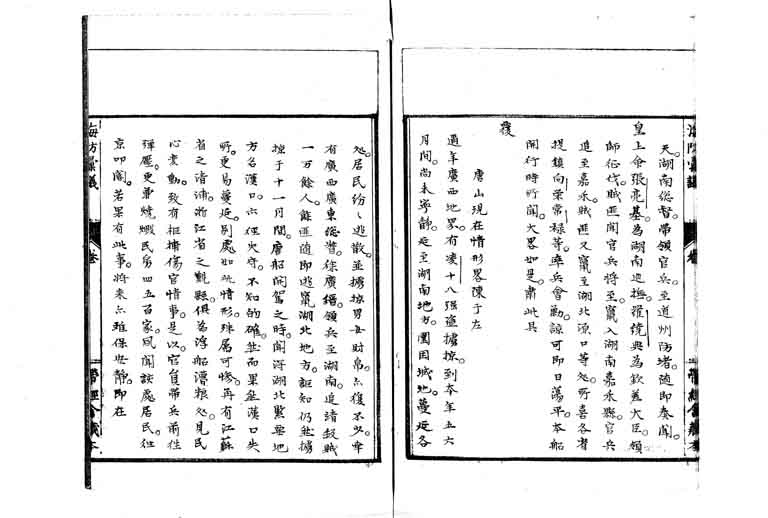 天。湖南總督。帶領官兵。至道州防堵。隨即奏聞。
皇上命張亮基。為湖南巡撫。羅繞典為欽差大臣。領
師征伐。賊匪聞官兵將至。竄入湖南嘉禾縣。官兵
進至嘉禾。賊匪又竄至湖北漢口等處。所喜各省
提鎮向榮常祿等。率兵會勦。諒可即日蕩平。本船
開行時所聞。大畧如是。肅此具
覆
唐山現在情形畧陳于左
過年廣西地界。有凌十八強盜擄掠。到本年五六
月間。尚未寧靜。延至湖南地方。圍困城池。蔓延各
處。居民紛紛逃散。並擄掠男女財帛。亦復不少。幸
有廣西廣東總督。徐廣縉領兵至湖南追清殺賊
一万餘人。餘匪隨即逃竄湖北地方。詎知仍然擄
掠。于十一月間。唐船開駕之時。聞得湖北緊要地
方名漢口。亦經失守。不知的確。然而果然漢口失
所。更易蔓延。別處如此情形。殊属可慘。再有江蘇
省之清浦。浙江省之鄞縣。俱為浮船漕粮。處見民
心変動。致有拒捕傷官情事。是以。官員帶兵前往
弾壓。更兼燒燬民房四五百家。風聞該處居民。往
京叩閽。若果有此事。將來亦难保安靜。即在
海防彙議
卷
帶經舍藏本